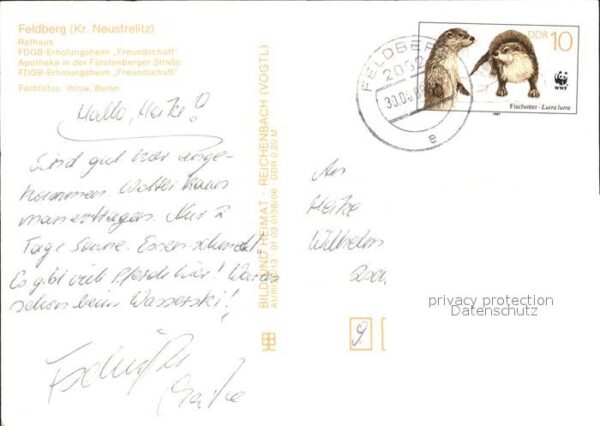 Feldberg (Kr. Neustrelitz)
Rathaus
FDGB-Erholungsheim „Freundschaft"
Apotheke in der Fürstenberger Straße
FDGB-Erholungsheim „Freundschaft"
Farbfotos: Ihlow, Berlin
Hallo, Heike!
Sind gut hier ange-
kommen Wetter kann
man ertragen. Nur 2
Tage Sonne. Essen schmeckt
Es gibt viele Pferde hier! Waren
schon beim Wasserski!
Tschüß
BILD UND HEIMAT · REICHENBACH (VOGTL)
DDR 0,20 M
DDR 10
WWF
Fischotter · Lutra lutra
1987
FELDBERG
2082
30.06
e
An
Heike
Wilhelm
privacy protection
Datenschutz
9